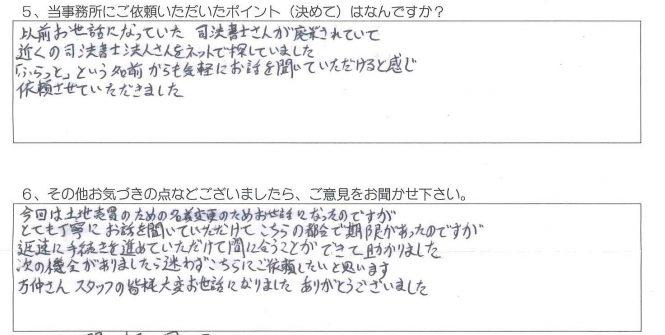 5、当事務所にご依頼いただいたポイント（決めて）はなんですか？
以前お世話になっていた 司法書士さんが廃業されていて
近くの司法書士法人さんをネットで探していました
「ふらっと」という名前からも気軽にお話を聞いていただけると感じ
依頼させていただきました
6、その他お気づきの点などございましたら、ご意見をお聞かせ下さい。
今回は土地売買のための名義変更のためお世話になったのですが
とても丁寧にお話を聞いていただけて こちらの都合で期限があったのですが
迅速に手続きを進めていただけて間に合うことが できて助かりました
次の機会がありましたら迷わずこちらにご依頼したいと思います
万仲さん スタッフの皆様大変お世話になりました ありがとうございました